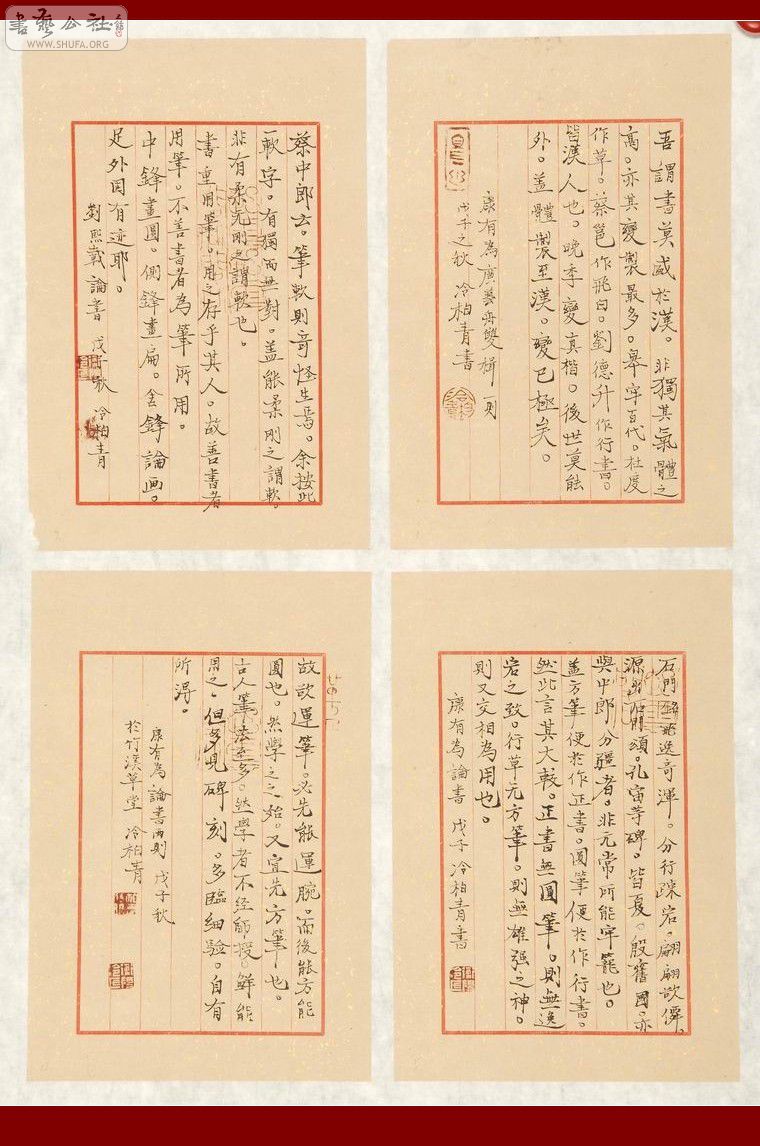 書藝公社
WWW.SHUFA.ORG
吾謂書莫盛於漢。非獨其氣體之
高。亦其變製最多。皋牢百代。杜度
作草。蔡邕作飛白。劉德升作行書。
皆漢人也。晚季變真楷。後世莫能
外。蓋體製至漢。變已極矣。
康有為廣藝舟雙楫一則
戊子之秋 冷柏青書
蔡中郎云。筆軟則奇怪生焉。余按此
一軟字。有獨而無對。蓋能柔剛之謂軟。
非有柔无剛之謂軟也。
書重用筆。用之存乎其人。故善書者
用筆。不善書者為筆所用。
中鋒畫圓。側鋒畫扁。舍鋒論画。
足外固有迹耶。
劉熙載論書 戊子秋 冷柏青
石門銘飛逸奇渾。分行疎宕。翩翩欲僊。
源出石門頌。孔宙等碑。皆夏。殷舊國。亦
與中郎分疆者。非元常所能牢籠也。
蓋方筆便於作正書。圓筆便於作行書。
然此言其大較。正書無圓筆。則無逸
宕之致。行草无方筆。則無雄强之神。
則又交相為用也。
康有為論書 戊子 冷柏青書
故欲運筆。必先能運腕。而後能方能
圓也。然學之之始。又宜先方筆也。
古人筆法至多。然學者不经師授。鮮能
用之。但多見碑刻。多臨細验。自有
所淂。
康有為論書両则 戊子秋
於竹溪草堂 冷柏青